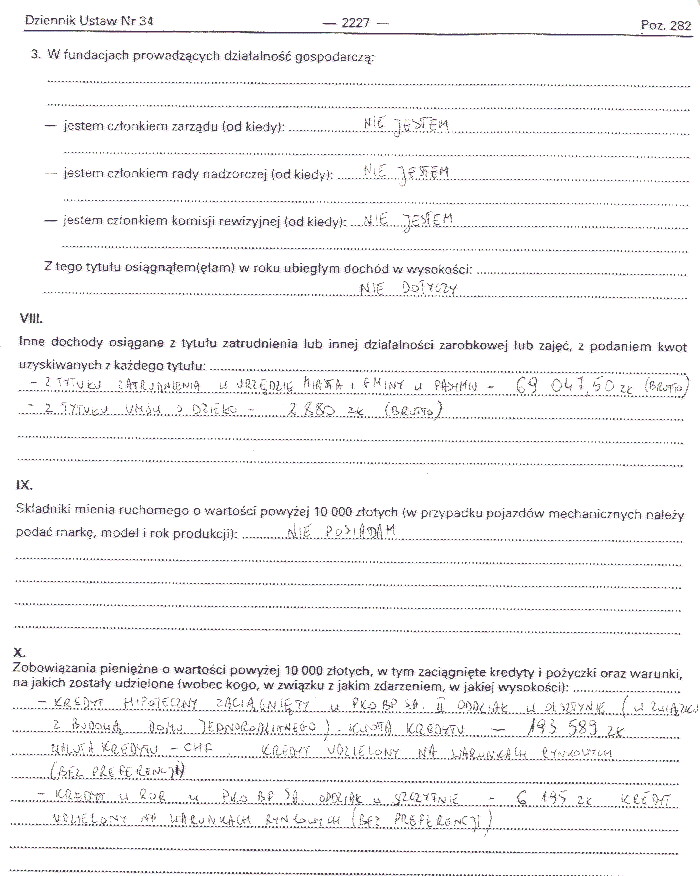 Dziennik Ustaw Nr 34 — 2227 — Poz. 282
3. W fundacjach prowadzących działalność gospodarczą:
— jestem członkiem zarządu (od kiedy): NIE JESTEM
— jestem członkiem rady nadzorczej (od kiedy): NIE JESTEM
— jestem członkiem komisji rewizyjnej (od kiedy): NIE JESTEM
Z tego tytułu osiągnąłem(ęłam) w roku ubiegłym dochód w wysokości:
NIE DOTYCZY
VIII.
Inne dochody osiągane z tytułu zatrudnienia lub innej działalności zarobkowej lub zajęć, z podaniem kwot
uzyskiwanych z każdego tytułu:
- Z TYTUŁU ZATRUDNIENIA W URZĘDZIE MIASTA I GMINY W PASYMIU - 69 047,50 ZŁ (BRUTTO)
- Z TYTUŁU UMÓW O DZIEŁO - 2 880 ZŁ (BRUTTO)
IX.
Składniki mienia ruchomego o wartości powyżej 10 000 złotych (w przypadku pojazdów mechanicznych należy
podać markę, model i rok produkcji): NIE POSIADAM
X.
Zobowiązania pieniężne o wartości powyżej 10 000 złotych, w tym zaciągnięte kredyty i pożyczki oraz warunki,
na jakich zostały udzielone (wobec kogo, w związku z jakim zdarzeniem, w jakiej wysokości):
- KREDYT HIPOTECZNY ZACIĄGNIĘTY W PKO BP SA. II ODDZIAŁ W OLSZTYNIE (W ZWIĄZKU
Z BUDOWĄ DOMU JEDNORODZINNEGO). KWOTA KREDYTU — 193 589 ZŁ
WALUTA KREDYTU - CHF KREDYT UDZIELONY NA WARUNKACH RYNKOWYCH
(BEZ PREFERENCJI)
- KREDYT W ROR W PKO BP SA. ODDZIAŁ W SZCZYTNIE - 6 195 ZŁ KREDYT
UDZIELONY NA WARUNKACH RYNKOWYCH (BEZ PREFERENCJI)